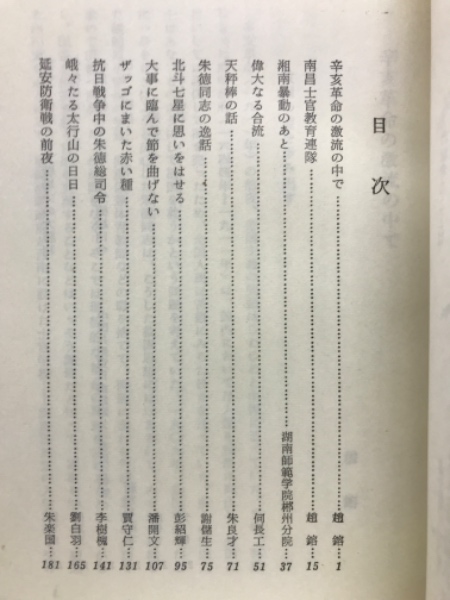 目次
辛亥革命の激流の中で……趙鎔…1
南昌士官教育連隊……趙鎔…15
湘南暴動のあと……湖南師範学院郴州分院…37
偉大なる合流……何長工…51
天秤棒の話……朱良才…71
朱德同志の逸話……謝儻生…75
北斗七星に思いをはせる……彭紹輝…95
大事に臨んで節を曲げない……潘開文…107
ザッゴにまいた赤い種……賈守仁…131
抗日戦争中の朱徳総司令……李樹槐…141
峨々たる太行山の日日……劉白羽…165
延安防衛戦の前夜……朱楽国…181